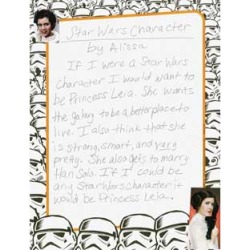 Star Wars Character
by Alissa
If I were a Star Wars
character I would want to
be Princess Leia. She wants
the galaxy to be a better place to
live. I also think that she
is strong, smart, and very
pretty. She also gets to marry
Han Solo. If I could be
any Star Wars character it
would be Princess Leia.